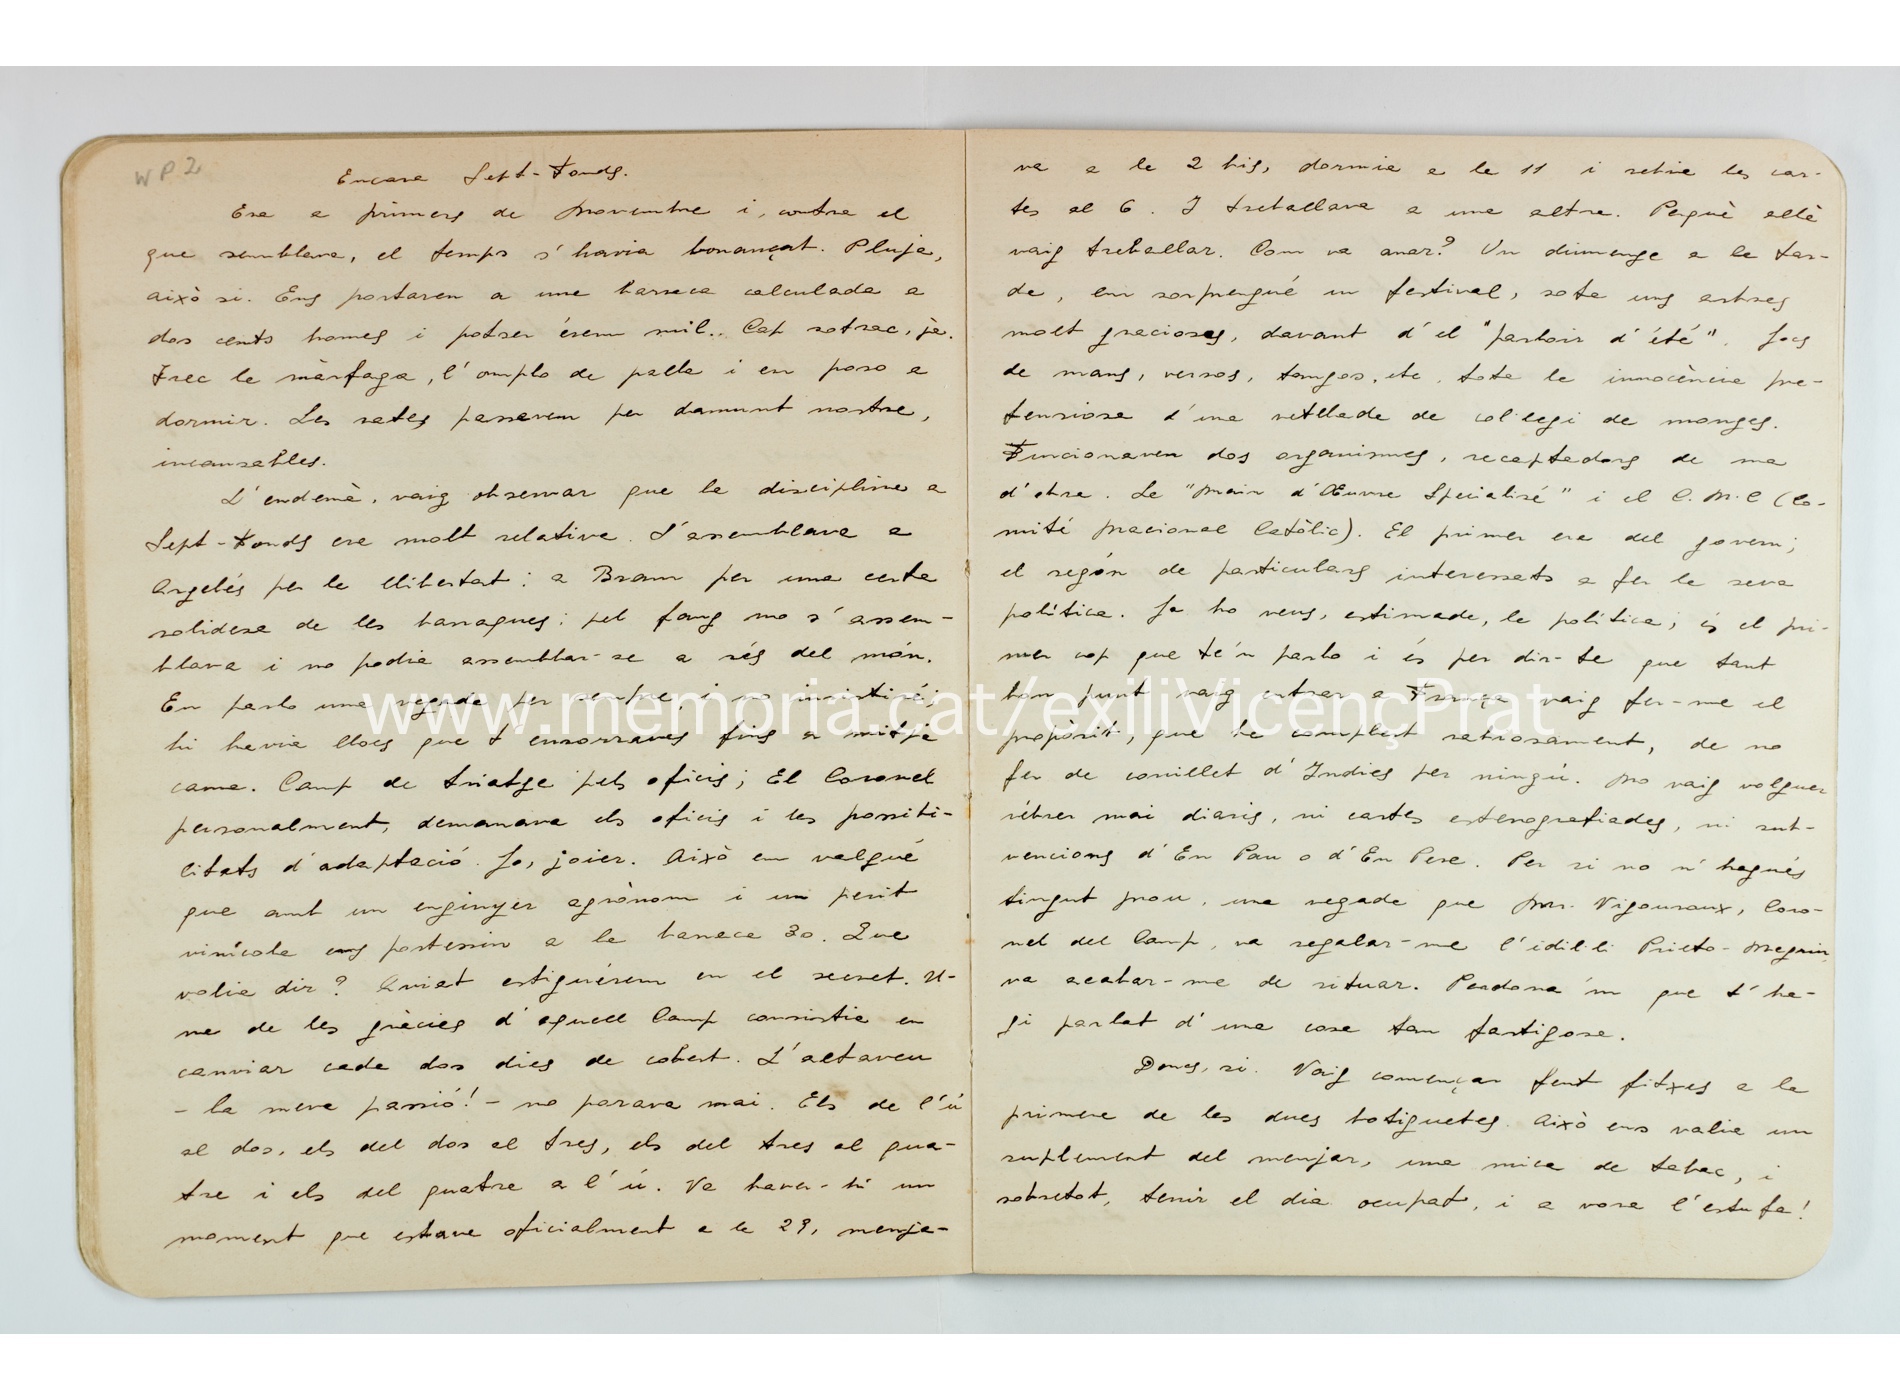 WP2
Encara Sept-Fonds.
Era a primers de Novembre i, contra el
que semblava, el temps s'havia bonançat. Pluja,
això si. Ens portaren a una barraca calculada a
dos cents homes i potser érem mil.. Cap sotrac, ja.
Trec la màrfaga, l'omplo de palla i em poso a
dormir. Les rates passaven per damunt nostre,
incansables.
L'endemà, vaig observar que la disciplina a
Sept-Fonds era molt relativa. S'assemblava a
Argelés per la llibertat; a Bram per una certa
solidesa de les barraques; pel fang no s'assem-
blava i no podia assemblar-se a rés del món.
En parlo una vegada per sempre, i no insistiré;
hi havia llocs que t'ensorraves fins a mitja
cama. Camp de triatge pels oficis; El Coronel
personalment, demanava els oficis i les possibi-
litats d'adaptació. Jo, joier. Això em valgué
que amb un enginyer agrònom i un perit
vinícola ens portessin a la barraca 30. Que
volia dir? Aviat estiguérem en el secret. U-
na de les gràcies d'aquell Camp consistia en
canviar cada dos dies de cobert. L'altaveu
- la meva passió! - no parava mai. Els de l'ú
al dos, els del dos al tres, els del tres al qua-
tre i els del quatre a l'ú. Va haver-hi un
moment que estava oficialment a la 29, menja-
va a la 2 bis, dormia a la 11 i rebia les car-
tes al 6. I treballava a una altra. Perquè allà
vaig treballar. Com va anar? Un diumenge a la tar-
de, em sorprengué un festival, sota uns arbres
molt graciosos, davant d'el "parloir d'été". Jocs
de mans, versos, tangos, etc, tota la innocència pre-
tensiosa d'una vetllada de col·legi de monges.
Funcionaven dos organismes, receptadors de ma
d'obra. La "Main d'Œuvre Spécialisé" i el C.N.C (Co-
mité Nacional Catòlic). El primer era del govern;
el segón de particulars interessats a fer la seva
política. Ja ho veus, estimada, la política; és el pri-
mer cop que te'n parlo i és per dir-te que tant
bon punt vaig entrar a França vaig fer-me el
propòsit, que he complert rabiosament, de no
fer de conillet d'Indies per ningú. No vaig volguer
rébrer mai diaris, ni cartes estenografiades, ni sub-
vencions d'En Pau o d'En Pere. Per si no n'hagués
tingut prou, una vegada que Mr. Vigouroux, Coro-
nel del Camp, va regalar-me l'idil·li Prieto-Negrin,
va acabar-me de situar. Perdona'm que t'ha-
gi parlat d'una cosa tan fastigosa.
Doncs, si. Vaig començar fent fitxes a la
primera de les dues botiguetes. Això ens valia un
suplement del menjar, una mica de tabac, i
sobretot, tenir el dia ocupat, i a vora l'estufa!
www.memoria.cat/exiliVicençPrat